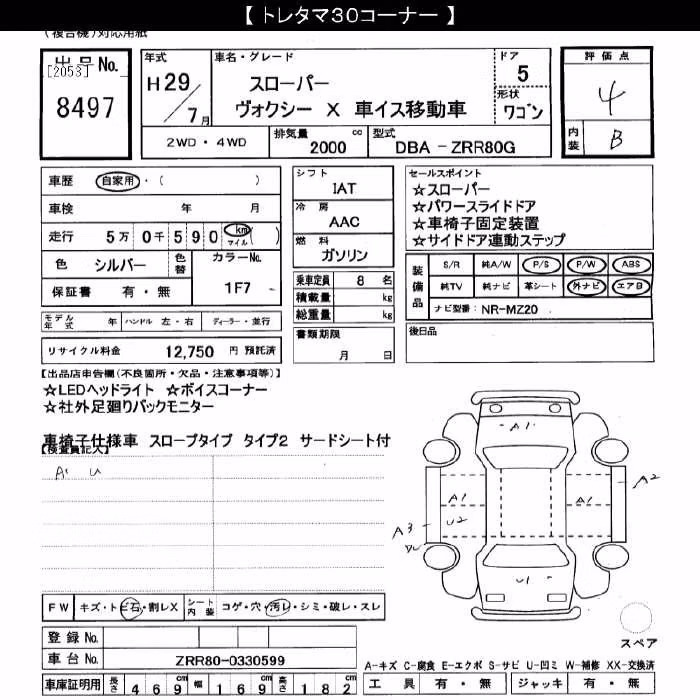 【 トレタマ30コーナー 】
(複合機)対応用紙
出品No.
[2053]
8497
年式
H29/7月
車名・グレード
スローパー
ヴォクシー X 車イス移動車
ドア
5
形状
ワゴン
評価点
4
内装
B
2WD・4WD
排気量 2000 cc
型式 DBA-ZRR80G
車歴 自家用・( )
車検 年 月
走行 5万 0千 590 km マイル( )
色 シルバー 色替 カラーNo. 1F7
保証書 有・無
モデル年式 年 ハンドル 左・右 ディーラー・並行
リサイクル料金 12,750 円 預託済
シフト
IAT
冷房
AAC
燃料
ガソリン
乗車定員 8 名
積載量 kg
総重量 kg
書類期限
月 日
セールスポイント
☆スローパー
☆パワースライドドア
☆車椅子固定装置
☆サイドドア連動ステップ
装備品
S/R 純A/W P/S P/W ABS
純TV 純ナビ 革シート 外ナビ エアB
ナビ型番: NR-MZ20
後日品
【出品店申告欄(不良箇所・欠品・注意事項等)】
☆LEDヘッドライト ☆ボイスコーナー
☆社外足廻りバックモニター
車椅子仕様車 スロープタイプ タイプ2 サードシート付
【検査員記入】
A' U
A1
A1
A1
A2
U2
A3
U1
FW キズ・トビ石・割レX シート内装 コゲ・穴・汚レ・シミ・破レ・スレ
登録No.
車台No. ZRR80-0330599
車庫証明用 長さ 469cm 幅 169cm 高さ 182cm
スペア
A-キズ C-腐食 E-エクボ S-サビ U-凹ミ W-補修 XX-交換済
工具 有・無 ジャッキ 有・無